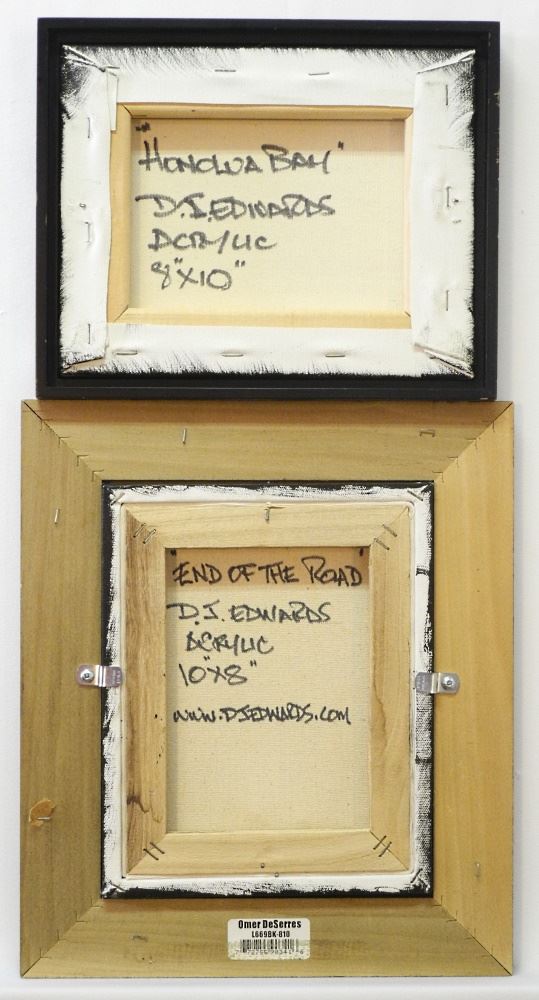 "HONOLUA BAY"
D.J. EDWARDS
ACRYLIC
8"X10"
"END OF THE ROAD"
D.J. EDWARDS
ACRYLIC
10"X8"
www.DJEDWARDS.COM
Omer DeSerres
L669BK-810